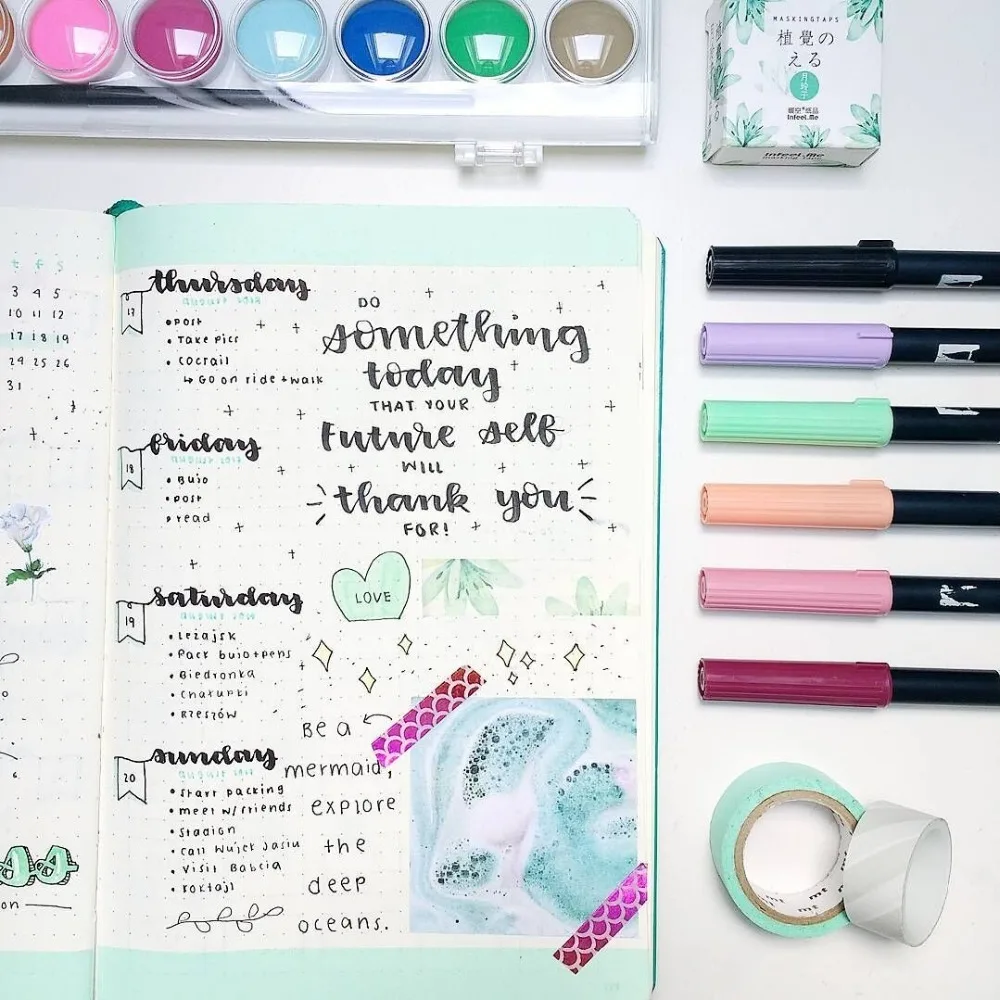 MASKINGTAPS
植覺の
える
月
玲
子
紙品
Infeel.Me
Infeel.Me
t f s
3 4 5
10 11 12
17 18 19
24 25 26
31
6
on
thursday
17
august 2017
• post
• Take pics
• Coctail
↳ Go on ride + walk
friday
18
august 2017
• Bujo
• post
• read
saturday
19
august 2017
• Leżajsk
• Pack bujo + pens
• Biedronka
• Chałupki
• Rzeszów
sunday
20
august 2017
• start packing
• meet w/friends
• Stadion
• call Wujek Jasiu
• Visit Babcia
• koktajl
DO
something
today
THAT YOUR
Future self
WILL
thank you
FOR!
LOVE
Be a
mermaid,
explore
the
deep
oceans.
mt